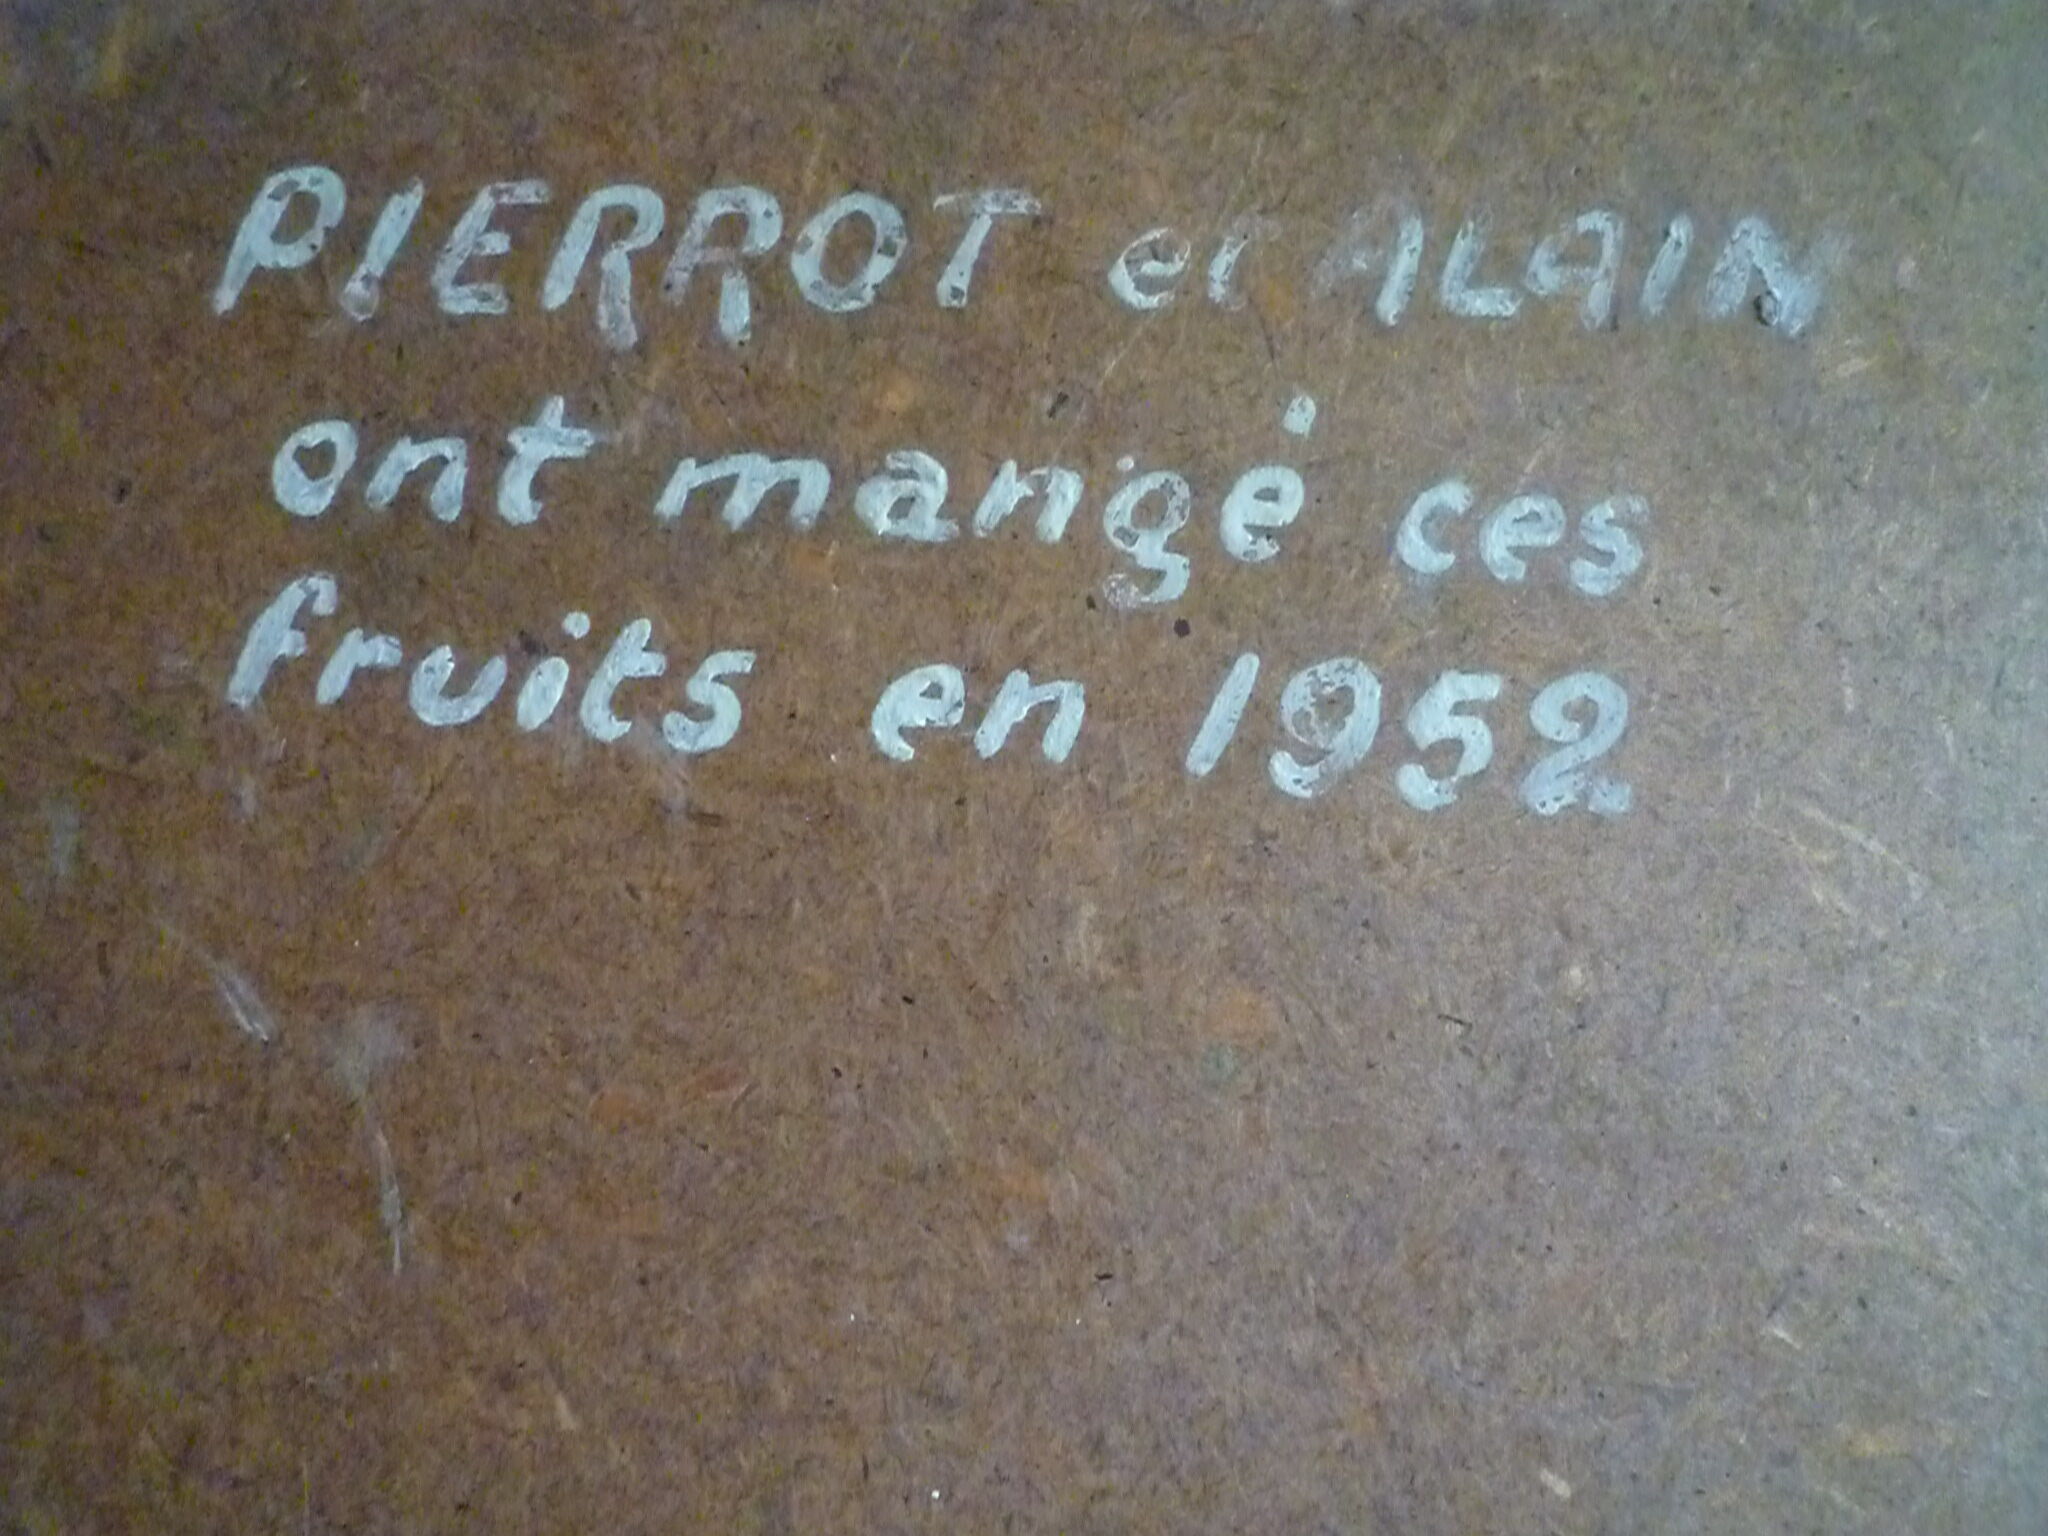 PIERROT et ALAIN
ont mangé ces
fruits en 1952